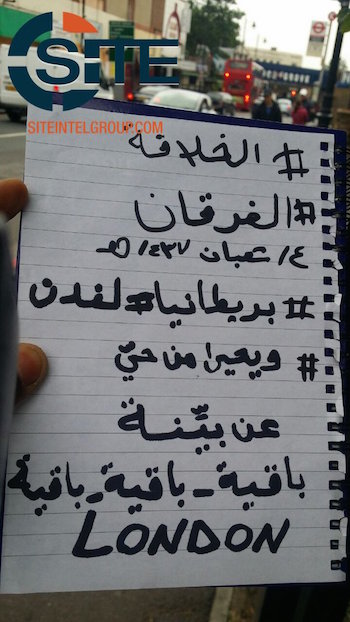 SITE
SITEINTELGROUP.COM
# الخلافة
#الفرقان
١٤ شعبان ١٤٣٧ هـ
# بريطانيا#لندن
# ويحيى من حيّ
عن بيّنة
باقية - باقية - باقية
LONDON